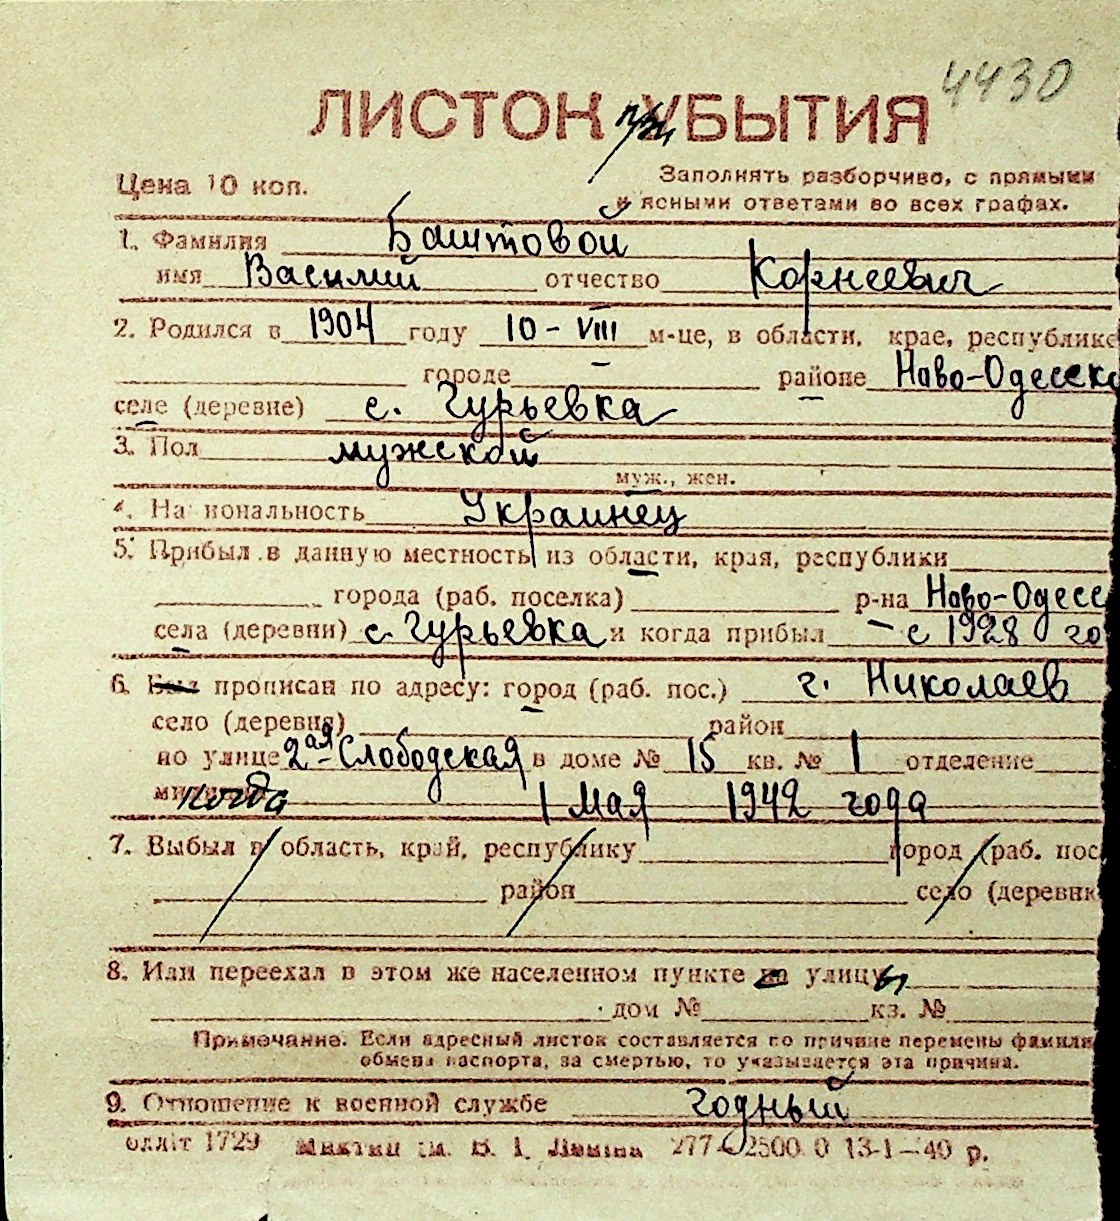 4430
ЛИСТОК при УБЫТИЯ
Цена 10 коп.
Заполнять разборчиво, с прямыми
и ясными ответами во всех графах.
1. Фамилия Баштовой
имя Василий отчество Корнеевич
2. Родился в 1904 году 10-VIII м-це, в области, крае, республике
городе районе Ново-Одесск
селе (деревне) с. Гурьевка
3. Пол мужской
муж., жен.
4. Национальность Украинец
5. Прибыл в данную местность из области, края, республики
города (раб. поселка) р-на Ново-Одесс
села (деревни) с. Гурьевка и когда прибыл с 1928 го
6. Был прописан по адресу: город (раб. пос.) г. Николаев
село (деревня) район
по улице 2ая Слободская в доме № 15 кв. № 1 отделение
милиции когда 1 Мая 1942 года
7. Выбыл в область, край, республику город (раб. пос
район село (деревня
8. Или переехал в этом же населенном пункте на улицу
дом № кв. №
Примечание. Если адресный листок составляется по причине перемены фамили
обмена паспорта, за смертью, то указывается эта причина.
9. Отношение к военной службе годный
1729 277 2500 0 13-1-40 р.